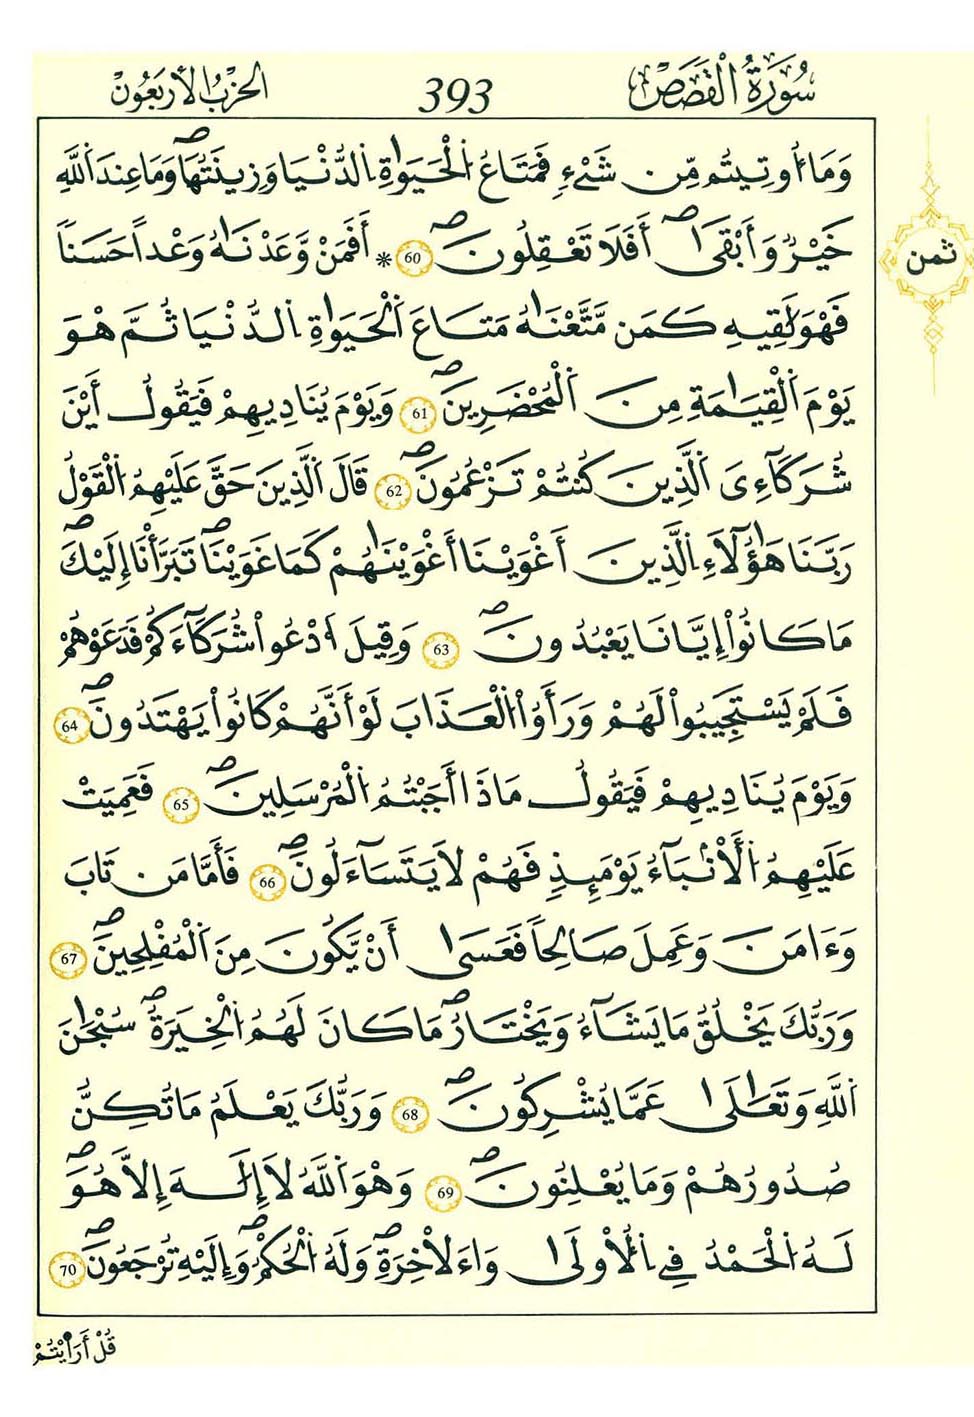 سُورَةُ الْقَصَصِ 393 الحِزْبُ الأَرْبَعُونَ
وَمَا أُوتِيتُم مِّن شَيْءٍ فَمَتَاعُ اُ۬لْحَيَوٰةِ اِ۬لدُّنْيَا وَزِينَتُهَاۖ وَمَا عِندَ اَ۬للَّهِ
خَيْرٌ وَأَبْقَىٰٓۖ أَفَلَا تَعْقِلُونَۖ 60 * أَفَمَنْ وَّعَدْنَٰهُ وَعْداً حَسَناً
ثمن
فَهْوَ لَٰقِيهِ كَمَن مَّتَّعْنَٰهُ مَتَاعَ اَ۬لْحَيَوٰةِ اِ۬لدُّنْيَا ثُمَّ هْوَ
يَوْمَ اَ۬لْقِيَٰمَةِ مِنَ اَ۬لْمُحْضَرِينَۖ 61 وَيَوْمَ يُنَادِيهِمْ فَيَقُولُ أَيْنَ
شُرَكَآءِىَ اَ۬لَّذِينَ كُنتُمْ تَزْعُمُونَۖ 62 قَالَ اَ۬لَّذِينَ حَقَّ عَلَيْهِمُ اُ۬لْقَوْلُ
رَبَّنَا هَٰٓؤُلَآءِ اِ۬لَّذِينَ أَغْوَيْنَا أَغْوَيْنَٰهُمْ كَمَا غَوَيْنَاۖ تَبَرَّأْنَا إِلَيْكَۖ
مَا كَانُوا۟ إِيَّانَا يَعْبُدُونَۖ 63 وَقِيلَ اَ۟دْعُوا۟ شُرَكَآءَكُمْ فَدَعَوْهُمْ
فَلَمْ يَسْتَجِيبُوا۟ لَهُمْ وَرَأَوُا۟ اُ۬لْعَذَابَ لَوْ أَنَّهُمْ كَانُوا۟ يَهْتَدُونَۖ 64
وَيَوْمَ يُنَادِيهِمْ فَيَقُولُ مَاذَا أَجَبْتُمُ اُ۬لْمُرْسَلِينَۖ 65 فَعَمِيَتْ
عَلَيْهِمُ اُ۬لْأَنۢبَآءُ يَوْمَئِذٍ فَهُمْ لَا يَتَسَآءَلُونَۖ 66 فَأَمَّا مَن تَابَ
وَءَامَنَ وَعَمِلَ صَالِحاً فَعَسَىٰ أَنْ يَّكُونَ مِنَ اَ۬لْمُفْلِحِينَۖ 67
وَرَبُّكَ يَخْلُقُ مَا يَشَآءُ وَيَخْتَارُۖ مَا كَانَ لَهُمُ اُ۬لْخِيَرَةُۖ سُبْحَٰنَ
اَ۬للَّهِ وَتَعَٰلَىٰ عَمَّا يُشْرِكُونَۖ 68 وَرَبُّكَ يَعْلَمُ مَا تُكِنُّ
صُدُورُهُمْ وَمَا يُعْلِنُونَۖ 69 وَهْوَ اَ۬للَّهُ لَا إِلَٰهَ إِلَّا هُوَۖ
لَهُ اُ۬لْحَمْدُ فِي اِ۬لْأُولَىٰ وَاءَلْأَخِرَةِۖ وَلَهُ اُ۬لْحُكْمُۖ وَإِلَيْهِ تُرْجَعُونَۖ 70
قُلْ أَرَٰيْتُمْ